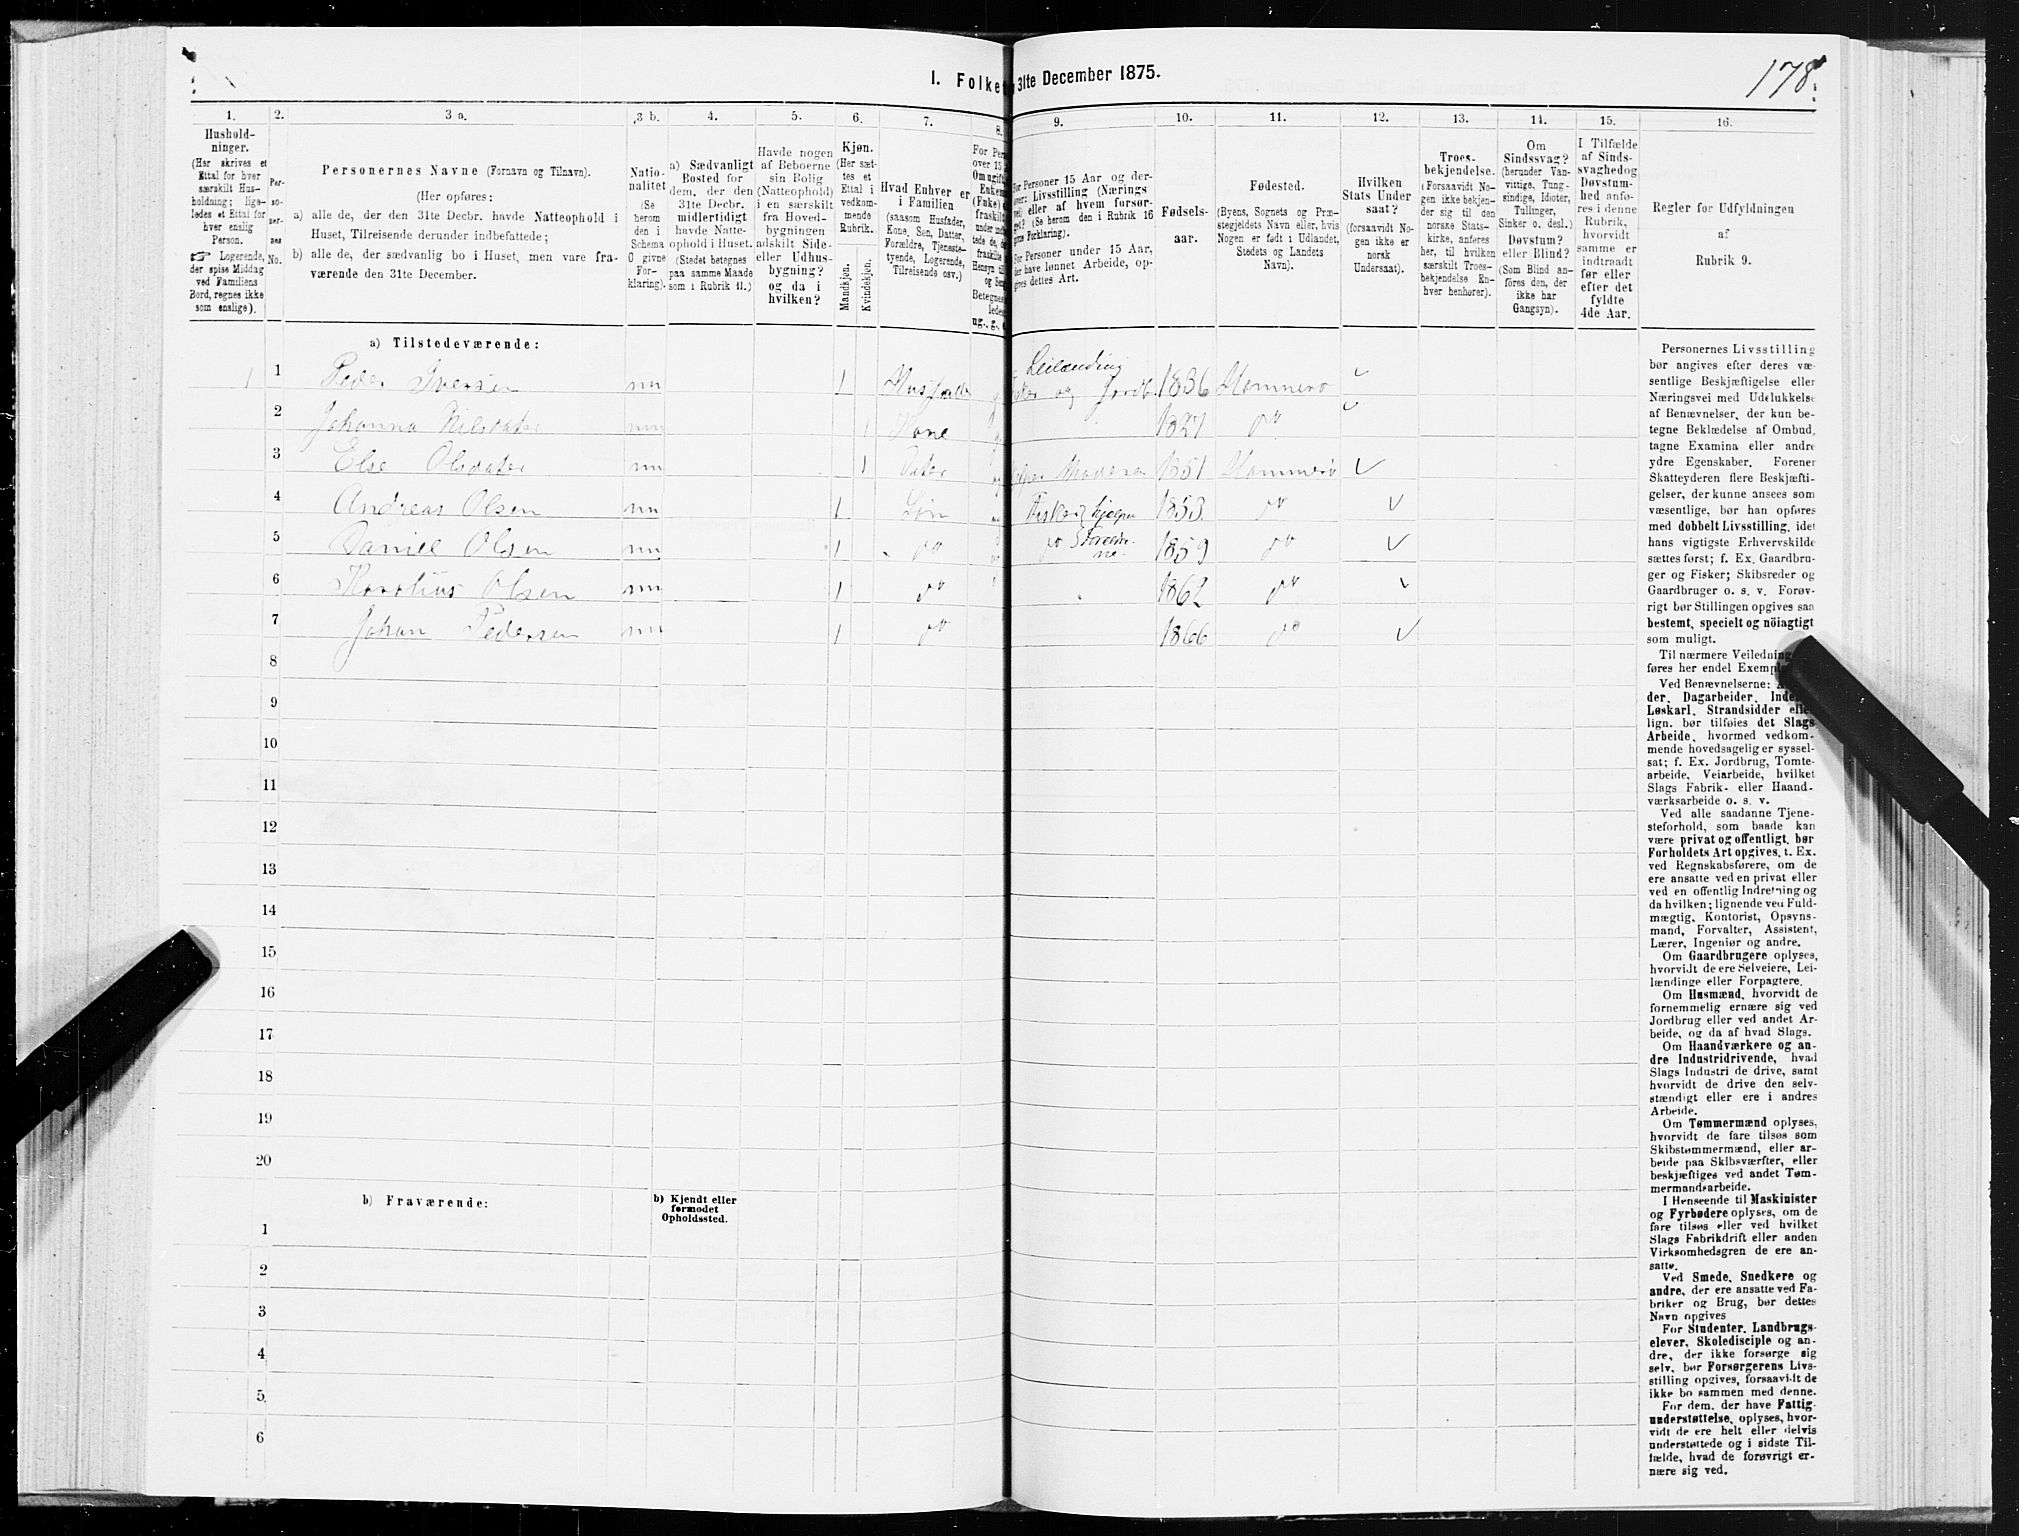 178.
I. Folke
31te December 1875.
1. 2. 3 a. 3 b. 4. 5. 6. 7. 8. 9. 10. 11. 12. 13. 14. 15. 16.
Hushold-
ninger.
(Her skrives et
Ettal for hver
særskilt Hus-
holdning; lige-
ledes et Ettal for
hver enslig
Person.
☞ Logerende,
der spise Middag
ved Familiens
Bord, regnes ikke
som enslige).
Per-
so-
ner-
nes
No.
Personernes Navne (Fornavn og Tilnavn).
(Her opføres:
a) alle de, der den 31te Decbr. havde Natteophold i
Huset, Tilreisende derunder indbefattede;
b) alle de, der sædvanlig bo i Huset, men vare fra-
værende den 31te December.
Natio-
nalitet
(Se
herom
den i
Schema
O givne
For-
klaring).
a) Sædvanligt
Bosted for
dem, der den
31te Decbr.
midlertidigt
havde Natte-
ophold i Huset.
(Stedet betegnes
paa samme Maade
som i Rubrik 11.)
Havde nogen
af Beboerne
sin Bolig
(Natteophold)
i en særskilt
fra Hoved-
bygningen
adskilt Side-
eller Udhus-
bygning?
og da i
hvilken?
Kjøn.
(Her sæt-
tes et
Ettal i
vedkom-
mende
Rubrik.
Mandkjøn.
Kvindekjøn.
Hvad Enhver er
i Familien
(saasom Husfader,
Kone, Søn, Datter,
Forældre, Tjeneste-
tyende, Logerende,
Tilreisende osv.)
For Per
over 15
Om ugift
Enkem
(Enke)
fraskilt
Betegnes
ug., g., e.
For Personer 15 Aar og der-
over: Livsstilling (Nærings
vei) eller af hvem forsør-
get? (Se herom den i Rubrik 16
givne Forklaring).
For Personer under 15 Aar,
der have lønnet Arbeide, op-
gives dettes Art.
Fødsels-
aar.
Fødested.
(Byens, Sognets og Præ-
stegjeldets Navn eller, hvis
Nogen er født i Udlandet,
Stedets og Landets
Navn).
Hvilken
Stats Under
saat?
(forsaavidt No-
gen ikke er
norsk
Undersaat).
Troes-
bekjendelse.
(Forsaavidt No-
gen ikke bekjen-
der sig til den
norske Stats-
kirke, anføres
her, til hvilken
særskilt Troes-
bekjendelse En-
hver henhører).
Om
Sindssvag?
(herunder Van-
vittige, Tung-
sindige, Idioter,
Tullinger,
Sinker o. desl.)
Døvstum?
eller Blind?
(Som Blind an-
føres den, der
ikke har
Gangsyn).
I Tilfælde
af Sinds-
svaghed og
Døvstum-
hed anfø-
res i denne
Rubrik,
hvorvidt
samme er
indtraadt
før eller
efter det
fyldte
4de Aar.
Regler for Udfyldningen
af
Rubrik 9.
a) Tilstedeværende:
1 1 Peder Iversen nn 1 Husfader g Leilænding og Jordb. 1836 Hammerø
2 Johanna Nilsdater nn 1 Kone g 1827 do
3 Else Olsdater nn 1 Dater 1851 Hammerø
4 Andreas Olsen nn 1 Søn Fisker, hjelper 1853 do
5 Daniel Olsen nn 1 do do Foreldrene 1859 do
6 Karolius Olsen nn 1 do 1862 do
7 Johan Pedersen nn 1 do 1866 do
8
9
10
11
12
13
14
15
16
17
18
19
20
b) Fraværende:
b) Kjendt eller
formodet
Opholdssted.
1
2
3
4
5
6
Personernes Livsstilling
bør angives efter deres væ-
sentlige Beskjæftigelse eller
Næringsvei med Udelukkelse
af Benævnelser, der kun be-
tegne Beklædelse af Ombud,
tagne Examina eller andre
ydre Egenskaber. Forener
Skatteyderen flere Beskjæfti-
gelser, der kunne ansees som
væsentlige, bør han opføres
med dobbelt Livsstilling, idet
hans vigtigste Erhvervskilde
sættes først; f. Ex. Gaardbru-
ger og Fisker; Skibsreder og
Gaardbruger o. s. v. Forøv-
rigt bør Stillingen opgives saa
bestemt, specielt og nöiagtigt
som muligt.
Til nærmere Veiledning
føres her endel Exempl
Ved Benævnelserne:
der, Dagarbeider, Inde
Løskarl, Strandsidder eller
lign. bør tilføies det Slags
Arbeide, hvormed vedkom-
mende hovedsagelig er syssel-
sat; f. Ex. Jordbrug, Tomte-
arbeide, Veiarbeide, hvilket
Slags Fabrik- eller Haand-
værksarbeide o. s. v.
Ved alle saadanne Tjene-
steforhold, som baade kan
være privat og offentligt, bør
Forholdets Art opgives, t. Ex.
ved Regnskabsførere, om de
ere ansatte ved en privat eller
ved en offentlig Indretning og
da hvilken; lignende ved Fuld-
mægtig, Kontorist, Opsyns-
mand, Forvalter, Assistent,
Lærer, Ingeniør og andre.
Om Gaardbrugere oplyses,
hvorvidt de ere Selveiere, Lei-
lændinge eller Forpagtere.
Om Husmænd, hvorvidt de
fornemmelig ernære sig ved
Jordbrug eller ved andet Ar-
beide, og da af hvad Slags.
Om Haandværkere og an-
dre Industridrivende, hvad
Slags Industri de drive, samt
hvorvidt de drive den selv-
stændigt eller ere i andres
Arbeide.
Om Tømmermænd oplyses,
hvorvidt de fare tilsøs som
Skibstømmermænd, eller ar-
beide paa Skibsværfter, eller
beskjæftiges ved andet Tøm-
mermandsarbeide.
I Henseende til Maskinister
og Fyrbødere oplyses, om de
fare tilsøs eller ved hvilket
Slags Fabrikdrift eller anden
Virksomhedsgren de ere an-
satte.
Ved Smede, Snedkere og
andre, der ere ansatte ved Fa-
briker og Brug, bør dettes
Navn opgives
For Studenter, Landbrugs-
elever, Skoledisciple og an-
dre, der ikke forsørge sig
selv, bør Forsørgerens Livs-
stilling opgives, forsaavidt de
ikke bo sammen med denne.
For dem, der have Fattig-
understøttelse, oplyses, hvor-
vidt de ere helt eller delvis
understøttede og i sidste Til-
fælde, hvad de forøvrigt er-
nære sig ved.